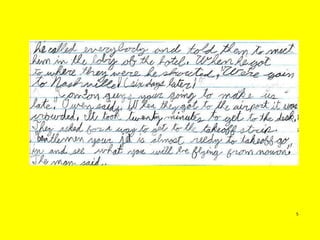 he called everybody and told them to meet
him in the loby ob the hotel. When he got
to where they were he shouted, "We're goin
to Nashville. (six days later)
"Common guys your going to make us
late." Owen said. When they got to the airport it was
crowded. It took twenty minutes to get to the desk.
They asked for a way to get to the takeoff strip.
Gentlemen your jet is almost reedy to takeoff go
on and see what you will be flying from nowon.
The man said..
5